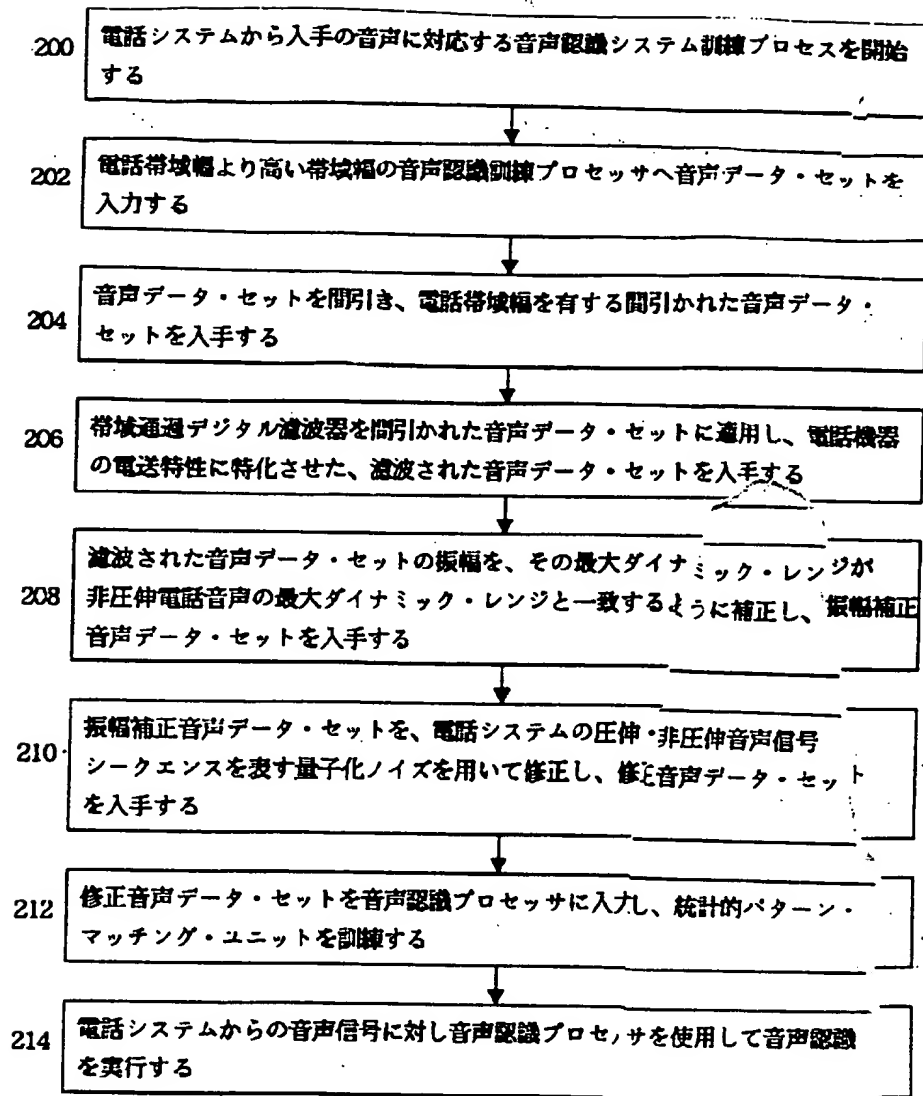 200
電話システムから入手の音声に対応する音声認識システム訓練プロセスを開始
する
202
電話帯域幅より高い帯域幅の音声認識訓練プロセッサへ音声データ・セットを
入力する
204
音声データ・セットを間引き、電話帯域幅を有する間引かれた音声データ・
セットを入手する
206
帯域通過デジタル濾波器を間引かれた音声データ・セットに適用し、電話機器
の電送特性に特化させた、濾波された音声データ・セットを入手する
208
濾波された音声データ・セットの振幅を、その最大ダイナミック・レンジが
非圧伸電話音声の最大ダイナミック・レンジと一致するように補正し、振幅補正
音声データ・セットを入手する
210
振幅補正音声データ・セットを、電話システムの圧伸・非圧伸音声信号
シークエンスを表す量子化ノイズを用いて修正し、修正音声データ・セット
を入手する
212
修正音声データ・セットを音声認識プロセッサに入力し、統計的パターン・
マッチング・ユニットを訓練する
214
電話システムからの音声信号に対し音声認識プロセッサを使用して音声認識
を実行する